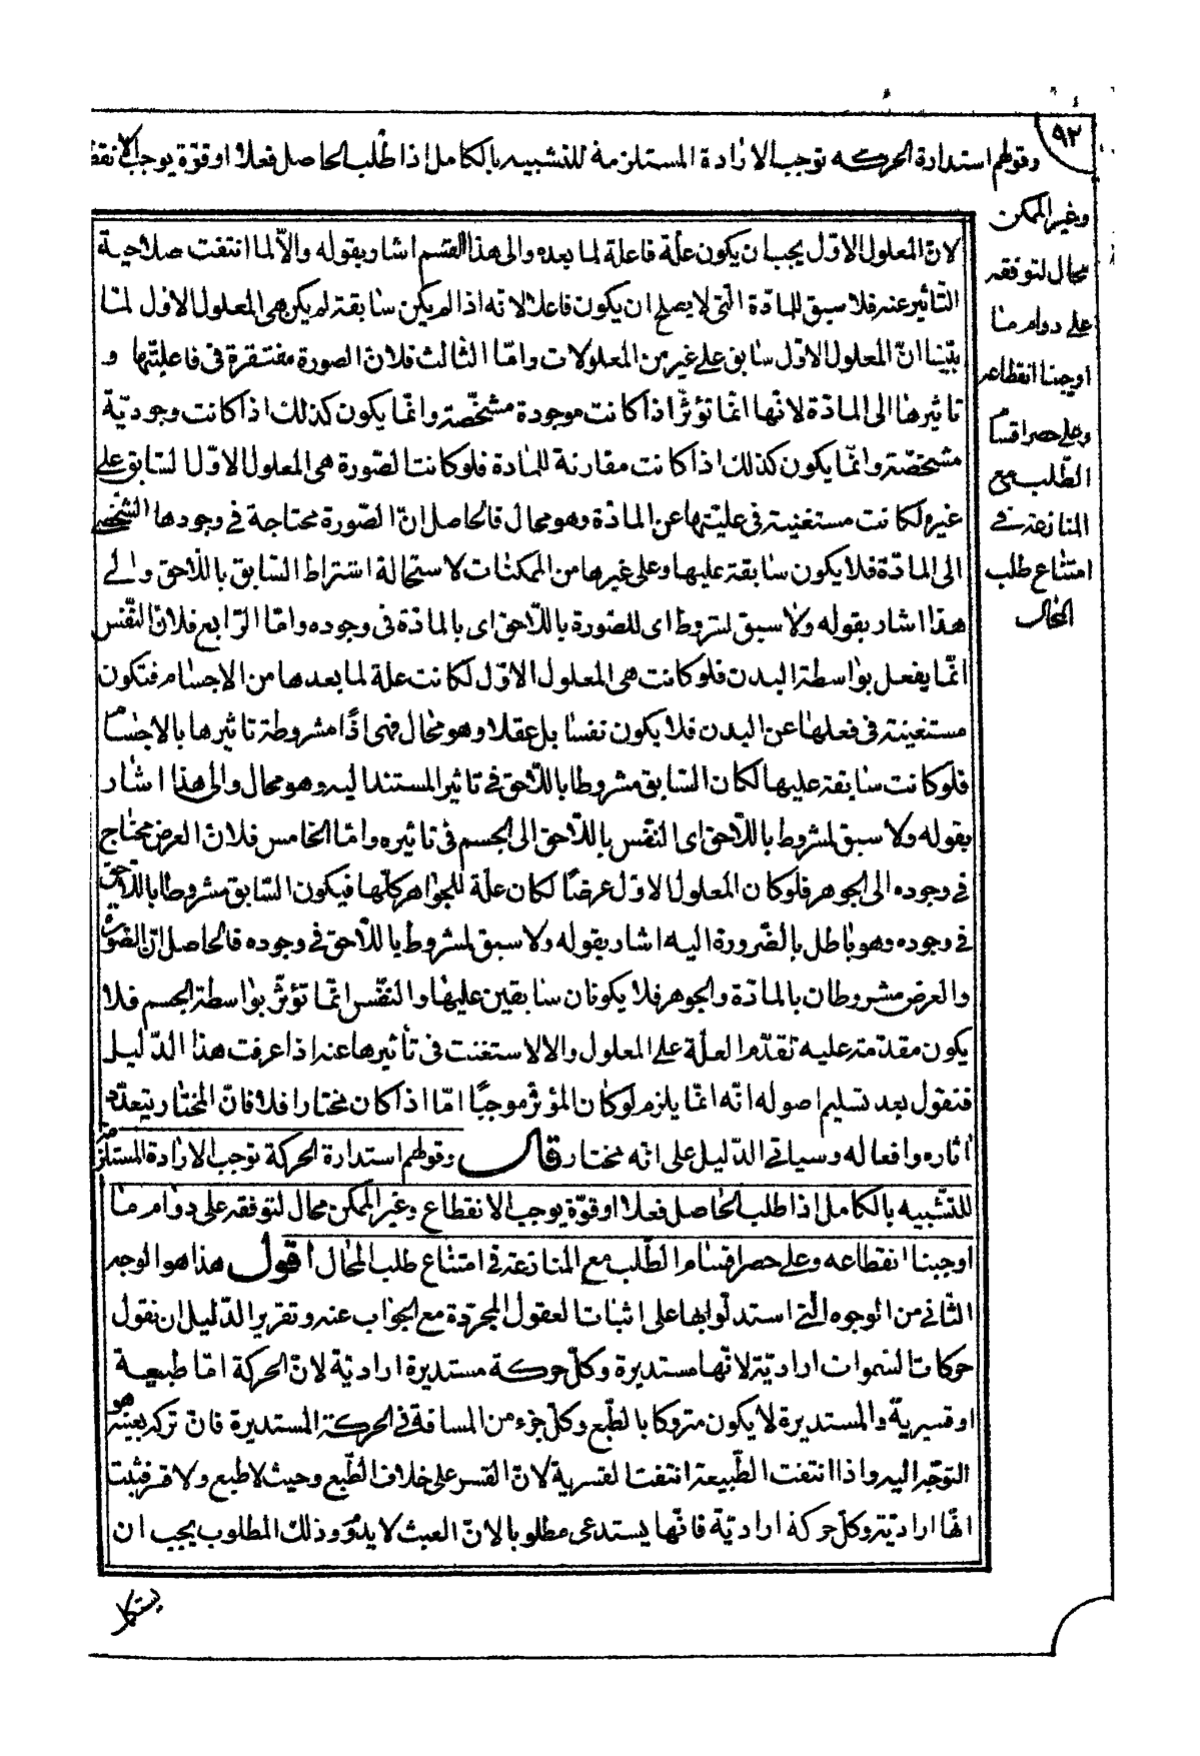 ٩٢
وقولهم استدارة الحركه توجب الارادة المستلزمة للتشبيه بالكامل اذا طلب الحاصل فعلا او قوّة يوجب الانقط
وغير الممكن
محال لتوقفه
على دوام ما
اوجبنا انقطاعه
وعلى حصر اقسا
الطّلب مع
المنازعة فى
امتناع طلب
المحال
لانّ المعلول الاوّل يجب ان يكون علّة فاعلة لما بعده والى هذا القسم اشار بقوله والّا لما انتفت صلاحية
التّأثير عنه فلا سبق للمادّة الّتى لا يصلح ان يكون فاعلا لانّه اذا لم يكن سابقة لم يكن هى المعلول الاوّل لمّا
بيّنا انّ المعلول الاوّل سابق على غيره من المعلولات وامّا الثالث فلانّ الصورة مفتقرة فى فاعليّتها و
تاثيرها الى المادّة لانّها انّما تؤثّر اذا كانت موجودة مشخّصة وانّما يكون كذلك اذا كانت وجوديّة
مشخّصة وانّما يكون كذلك اذا كانت مقارنة للمادة فلو كانت الصّورة هى المعلول الاوّل السّابق على
غيره لكانت مستغنية فى عليّتها عن المادّة وهو محال فالحاصل انّ الصّورة محتاجة فى وجودها الشّخصى
الى المادّة فلا يكون سابقة عليها وعلى غيرها من الممكنات لاستحالة اشتراط السّابق باللّاحق والى
هذا اشار بقوله ولا سبق لمشروط اى للصّورة باللّاحق اى بالمادّة فى وجوده وامّا الرّابع فلانّ النّفس
انّما يفعل بواسطة البدن فلو كانت هى المعلول الاوّل لكانت علة لما بعدها من الاجسام فتكون
مستغنية فى فعلها عن البدن فلا يكون نفسا بل عقلا وهو محال فهى اذًا مشروطة تاثيرها بالاجسام
فلو كانت سابقة عليها لكان السّابق مشروطا باللّاحق فى تاثير المستند اليه وهو محال والى هذا اشار
بقوله ولا سبق لمشروط باللّاحق اى النّفس باللّاحق الى الجسم فى تاثيره وامّا الخامس فلانّ العرض محتاج
فى وجوده الى الجوهر فلو كان المعلول الاوّل عرضًا لكان علّة للجواهر كلّها فيكون السّابق مشروطا باللّاحق
فى وجوده وهو باطل بالضّرورة اليه اشار بقوله ولا سبق لمشروط باللّاحق فى وجوده فالحاصل انّ الصّورة
والعرض مشروطان بالمادّة والجوهر فلا يكونان سابقين عليهما والنّفس انّما تؤثّر بواسطة الجسم فلا
يكون مقدّمة عليه تقدّم العلّة على المعلول والا لاستغنت فى تأثيرها عنه اذا عرفت هذا الدّليل
فنقول بعد تسليم اصوله انّه انّما يلزم لو كان المؤثّر موجبًا امّا اذا كان مختارا فلا فانّ المختار يتعدّد
اثاره وافعاله وسياتى الدّليل على انّه مختار قال وقولهم استدارة الحركة توجب الارادة المستلزمة
للتّشبيه بالكامل اذا طلب الحاصل فعلا او قوّة يوجب الانقطاع وغير الممكن محال لتوقفه على دوام ما
اوجبنا انقطاعه وعلى حصر اقسام الطّلب مع المنازعة فى امتناع طلب المحال اقول هذا هو الوجه
الثّانى من الوجوه الّتى استدلّوا بها على اثبات العقول المجرّدة مع الجواب عنه وتقرير الدّليل ان نقول
حركات السّموات اراديّة لانّها مستديرة وكلّ حركة مستديرة اراديّة لانّ الحركة امّا طبيعية
او قسريّة والمستديرة لا يكون متروكا بالطّبع وكلّ جزء من المسافة فى الحركة المستديرة فانّ تركه بعينه هو
التوجّه اليه واذا انتفت الطّبيعة انتفت القسرية لانّ القسر على خلاف الطّبع وحيث لا طبع ولا قسر فثبت
انّها اراديّة وكلّ حركة اراديّة فانّها يستدعى مطلوبا لانّ العبث لا يدوم وذلك المطلوب يجب ان
يستكمل